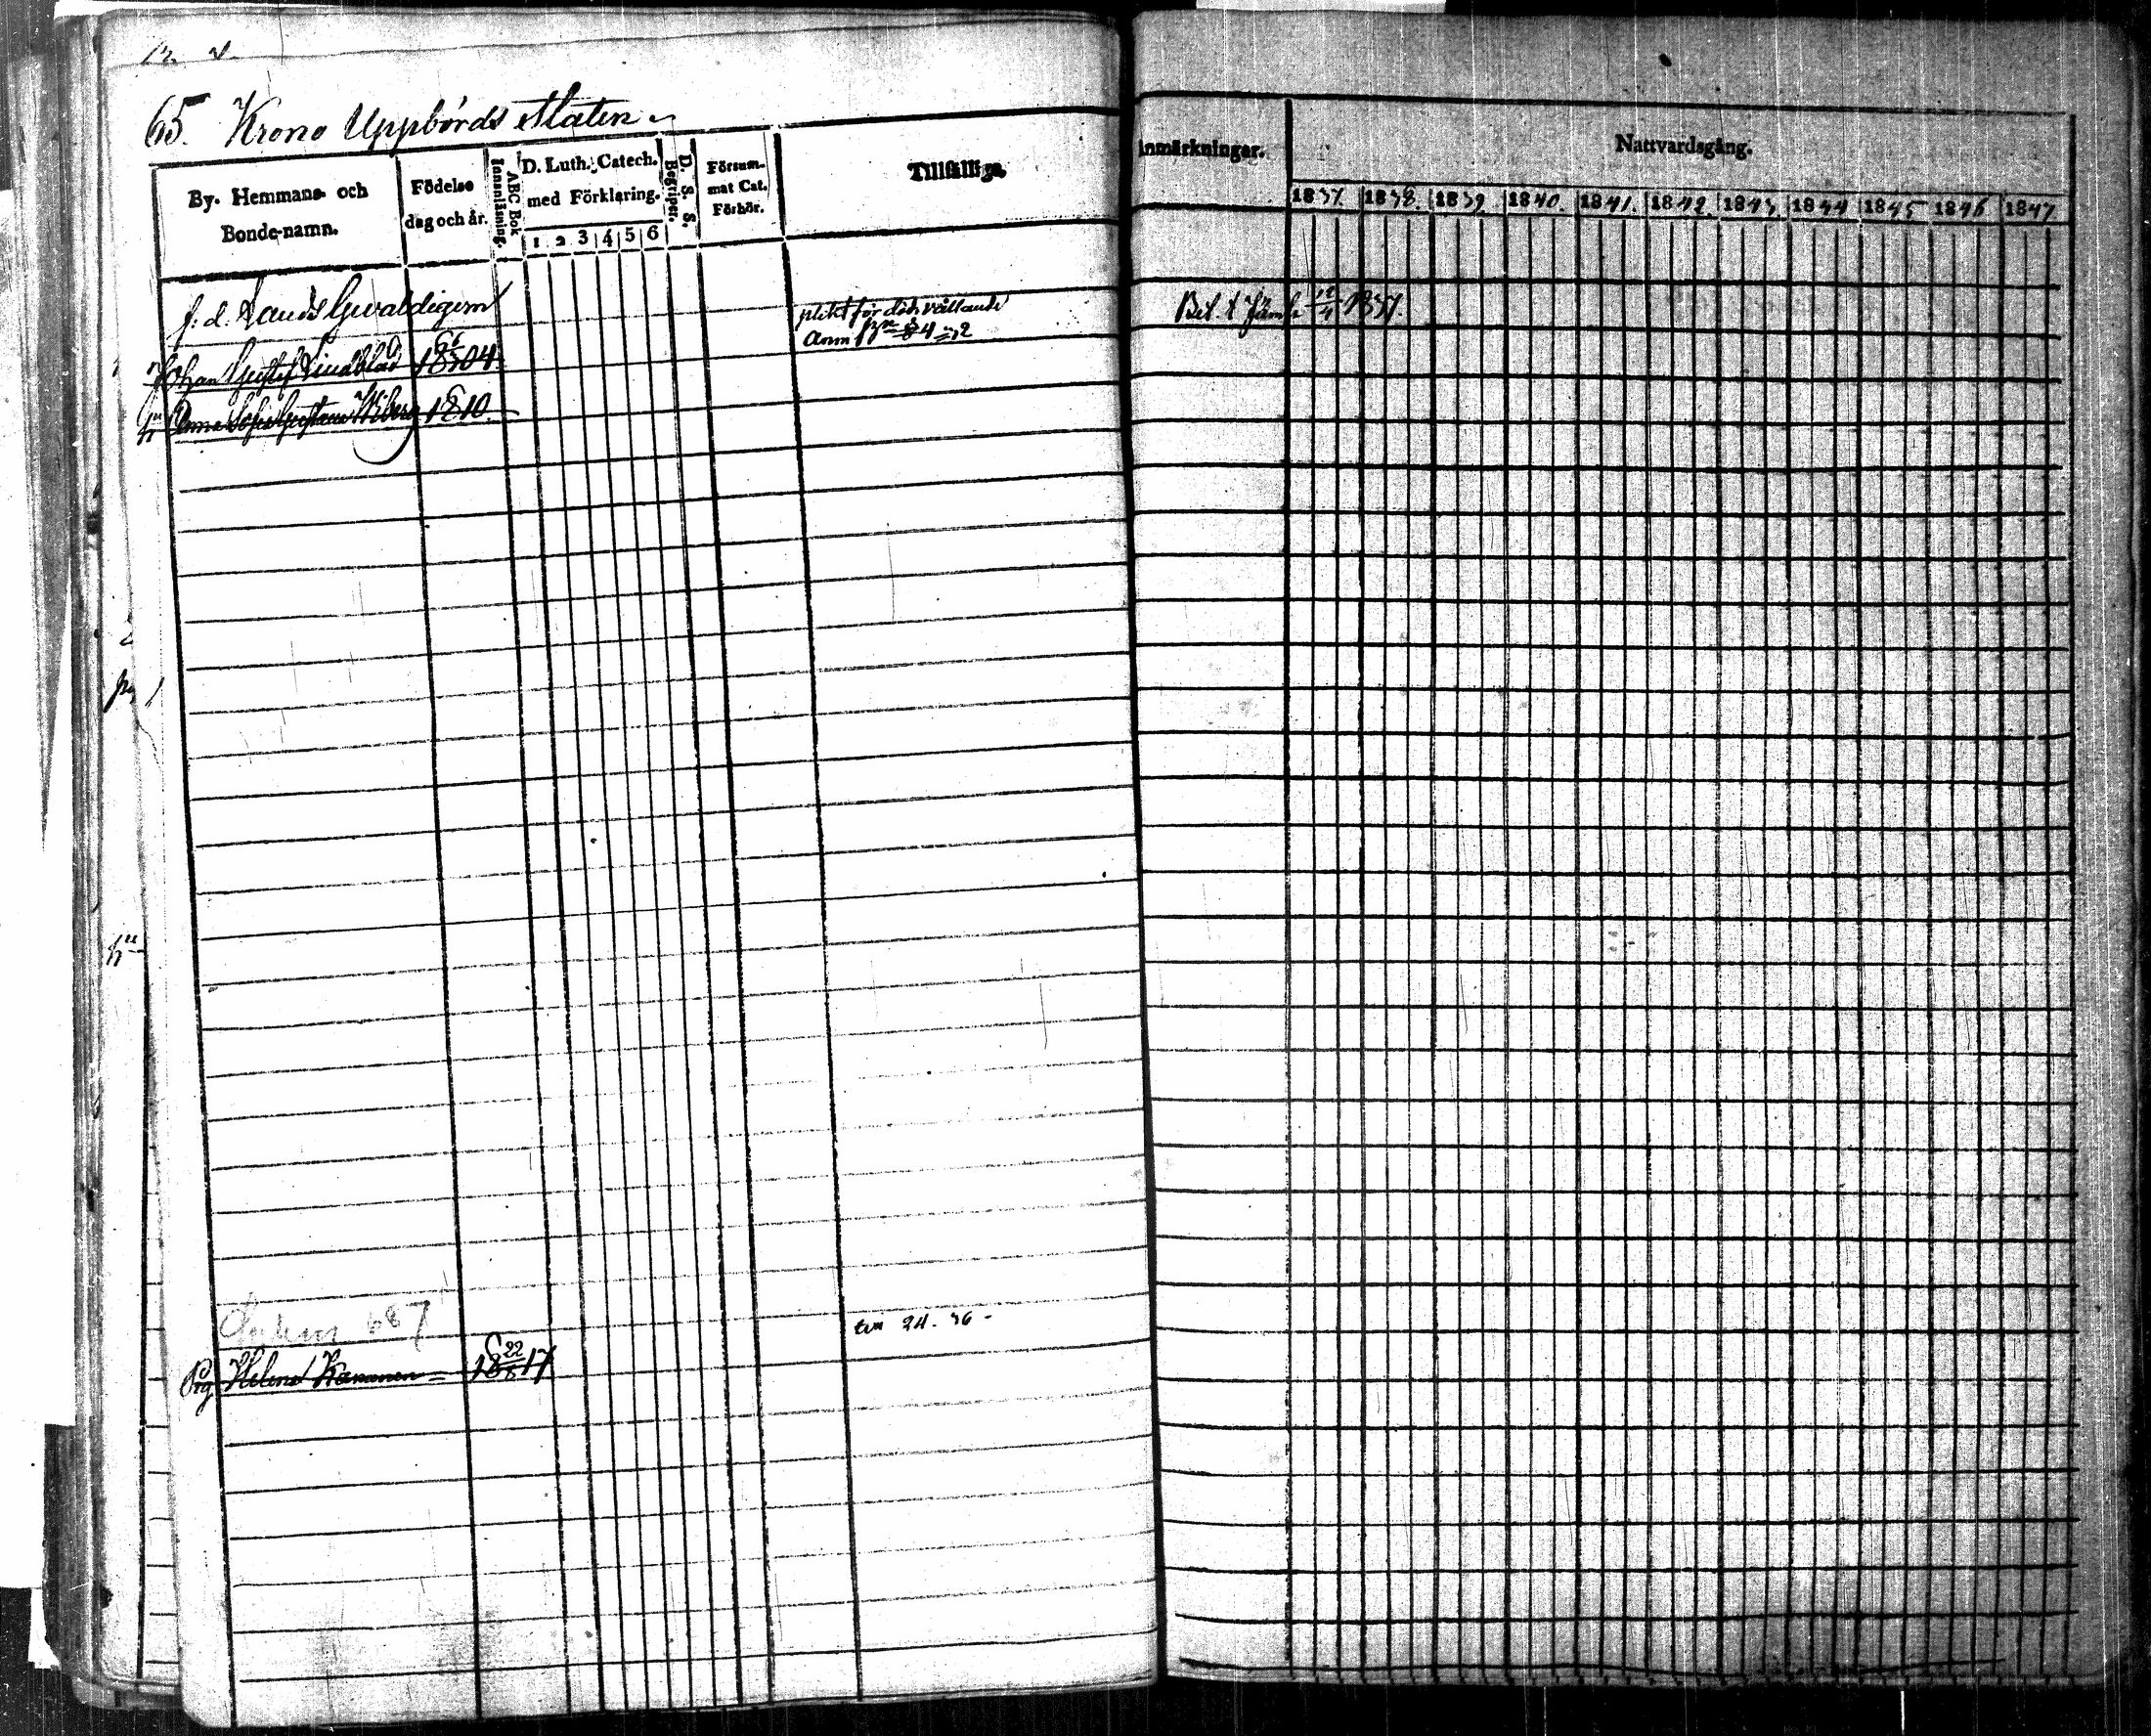 65. Krono Uppbörds Staten
By. Hemmans- och Bonde-namn.
Födelse dag och år.
ABC Bok Innanläsning.
D. Luth. Catech. med Förklaring.
1 2 3 4 5 6
D. S. S. Begriper.
Försummat Cat. Förhör.
Tillfälliga
Anmärkningar.
Nattvardsgång.
1837. 1838. 1839. 1840. 1841. 1842. 1843. 1844 1845 1846 1847
f. d. Lands Gevaldigern
plikt för dödsvållande
Bet. t
1837.
Johan Gustaf Lindblad 1804.
Anm
hu Anna Sofia Gustava Wiberg 1810.
687
24. 36 -
Pig Helena 18 22/5 17